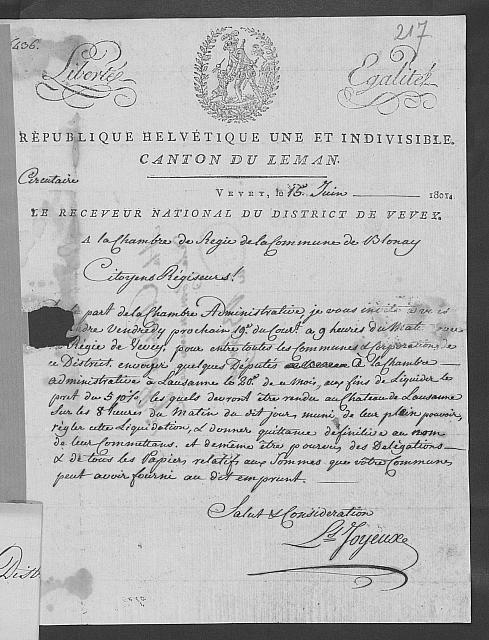 217
436.
Liberté Egalité
RÉPUBLIQUE HELVÉTIQUE UNE ET INDIVISIBLE.
CANTON DU LEMAN.
Circulaire
VEVEY, le 15 Juin 1801.
LE RECEVEUR NATIONAL DU DISTRICT DE VEVEY.
A la Chambre de Régie de la Commune de Blonay
Citoyens Régisseurs!
part de la Chambre Administrative, je vous invite à
Vendredy prochain 19e. du Cour.t à 9 heures du Mat.
Régie de Vevey, pour entre toutes les Communes & Corporations de
ce District, envoyer quelques Députés à la Chambre
administrative à Lausanne le 20e. de ce Mois, aux fins de Liquider le
port du 5 p%, les quels devront être rendu au Chateau de Lausanne
sur les 8 heures du Matin du dit jour, muni de leur plein pouvoir,
régler cette Liquidation, & donner quittance définitive au nom
de leur Committans. et de même être pourvus des Délégations
& de tous les Papiers relatifs aux Sommes que votre Commune
peut avoir fourni au dit emprunt.
Salut & Considération
Ls Joyeux
Dist